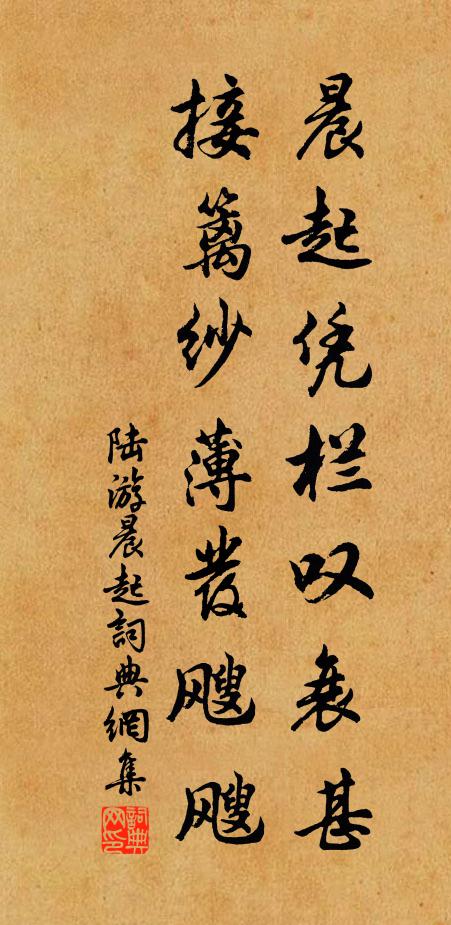 晨起凭栏叹衰甚
接篱纱薄发飕飕
陆游晨起詞典網集
詞典网印